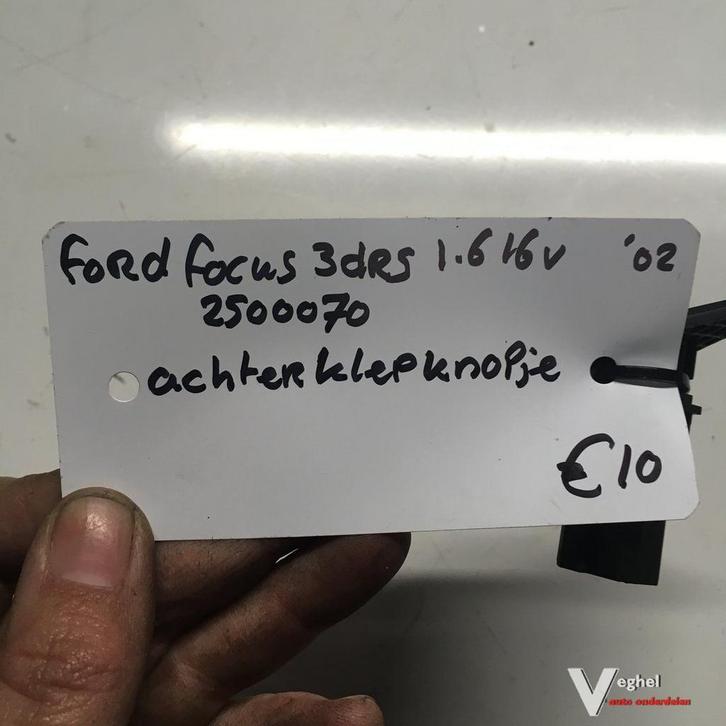 Ford focus 3dRs 1.6 16v '02
2500070
achterklepknopje
€10
Veghel
auto onderdelen